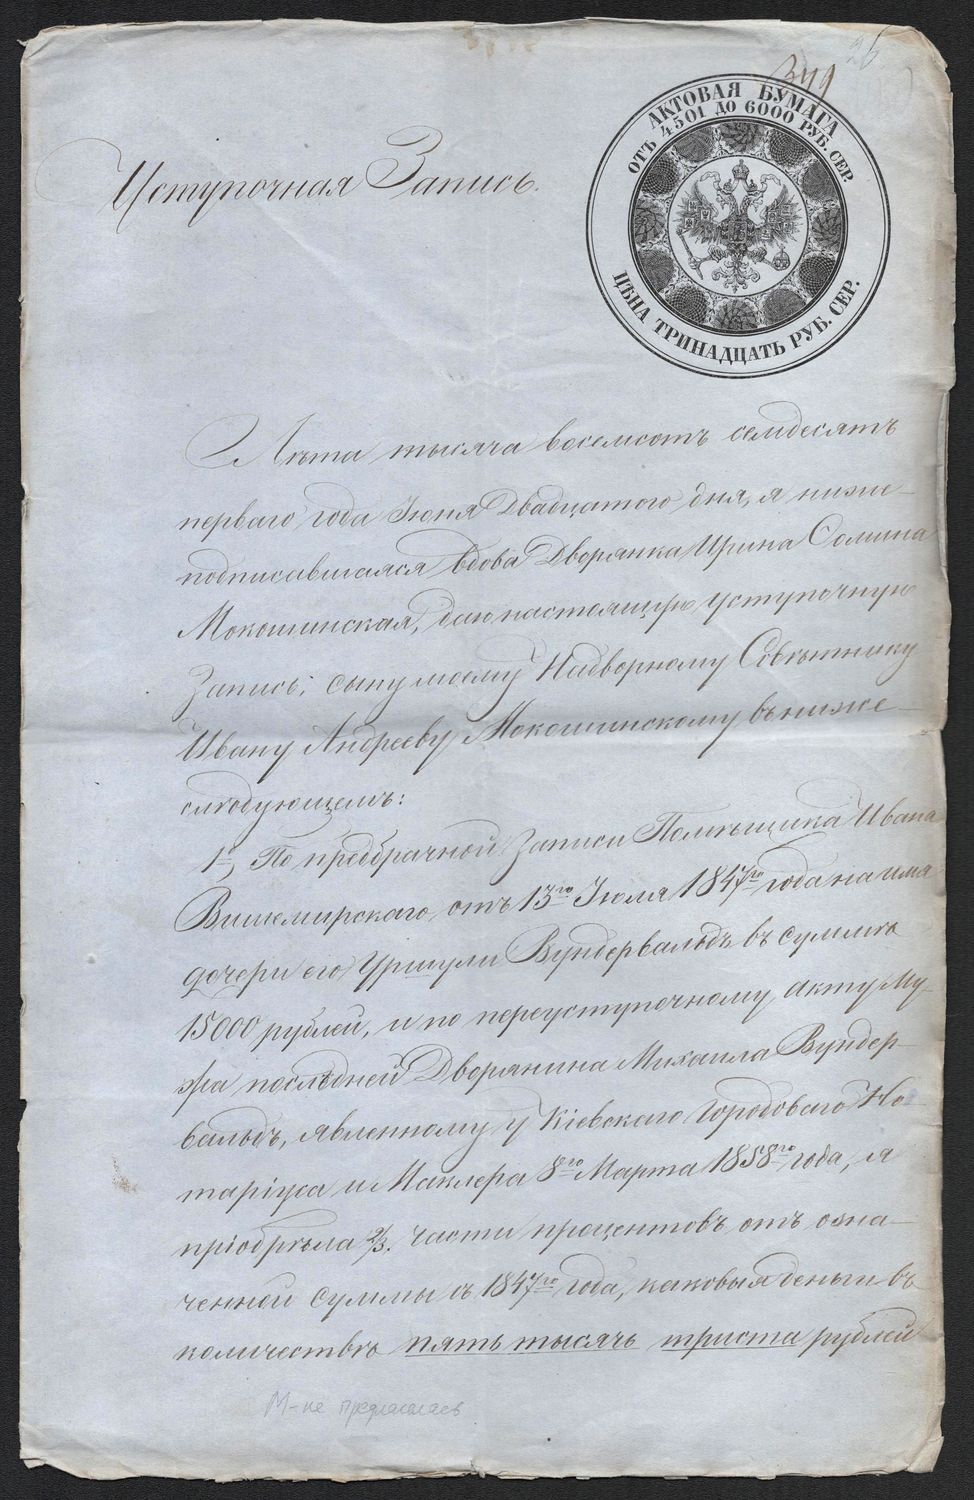 25
349
АКТОВАЯ БУМАГА
ОТЪ 4501 ДО 6000 РУБ. СЕР.
ЦѢНА ТРИНАДЦАТЬ РУБ. СЕР.
Уступочная Запись.
Лѣта тысяча восемсотъ семдесятъ
перваго года Іюня Двадцатого дня, я ниже-
подписавшаяся вдова Дворянка Ирина Сомина
Мокошинская, даю настоящую уступочную
Запись; сыну моему Надворному Совѣтнику
Ивану Андрееву Мокошинскому въ ниже-
слѣдующемъ:
1-, По предбрачной Записи Помѣщика Ивана
Вишемирскаго, отъ 13го Іюля 1847го года на имя
дочери его Уршули Вундервальдъ въ суммѣ
15000 рублей, и по переуступочному акту Му-
жа последней Дворянина Михаила Вундер-
вальдъ, явленному у Кіевскаго Городоваго Но-
таріуса и Маклера 8го Марта 1858го года, я
пріобрѣла 2/3. части процентовъ отъ озна-
ченной суммы съ 1847го года, каковыя деньги въ
количествѣ пять тысячъ триста рублей
М-не